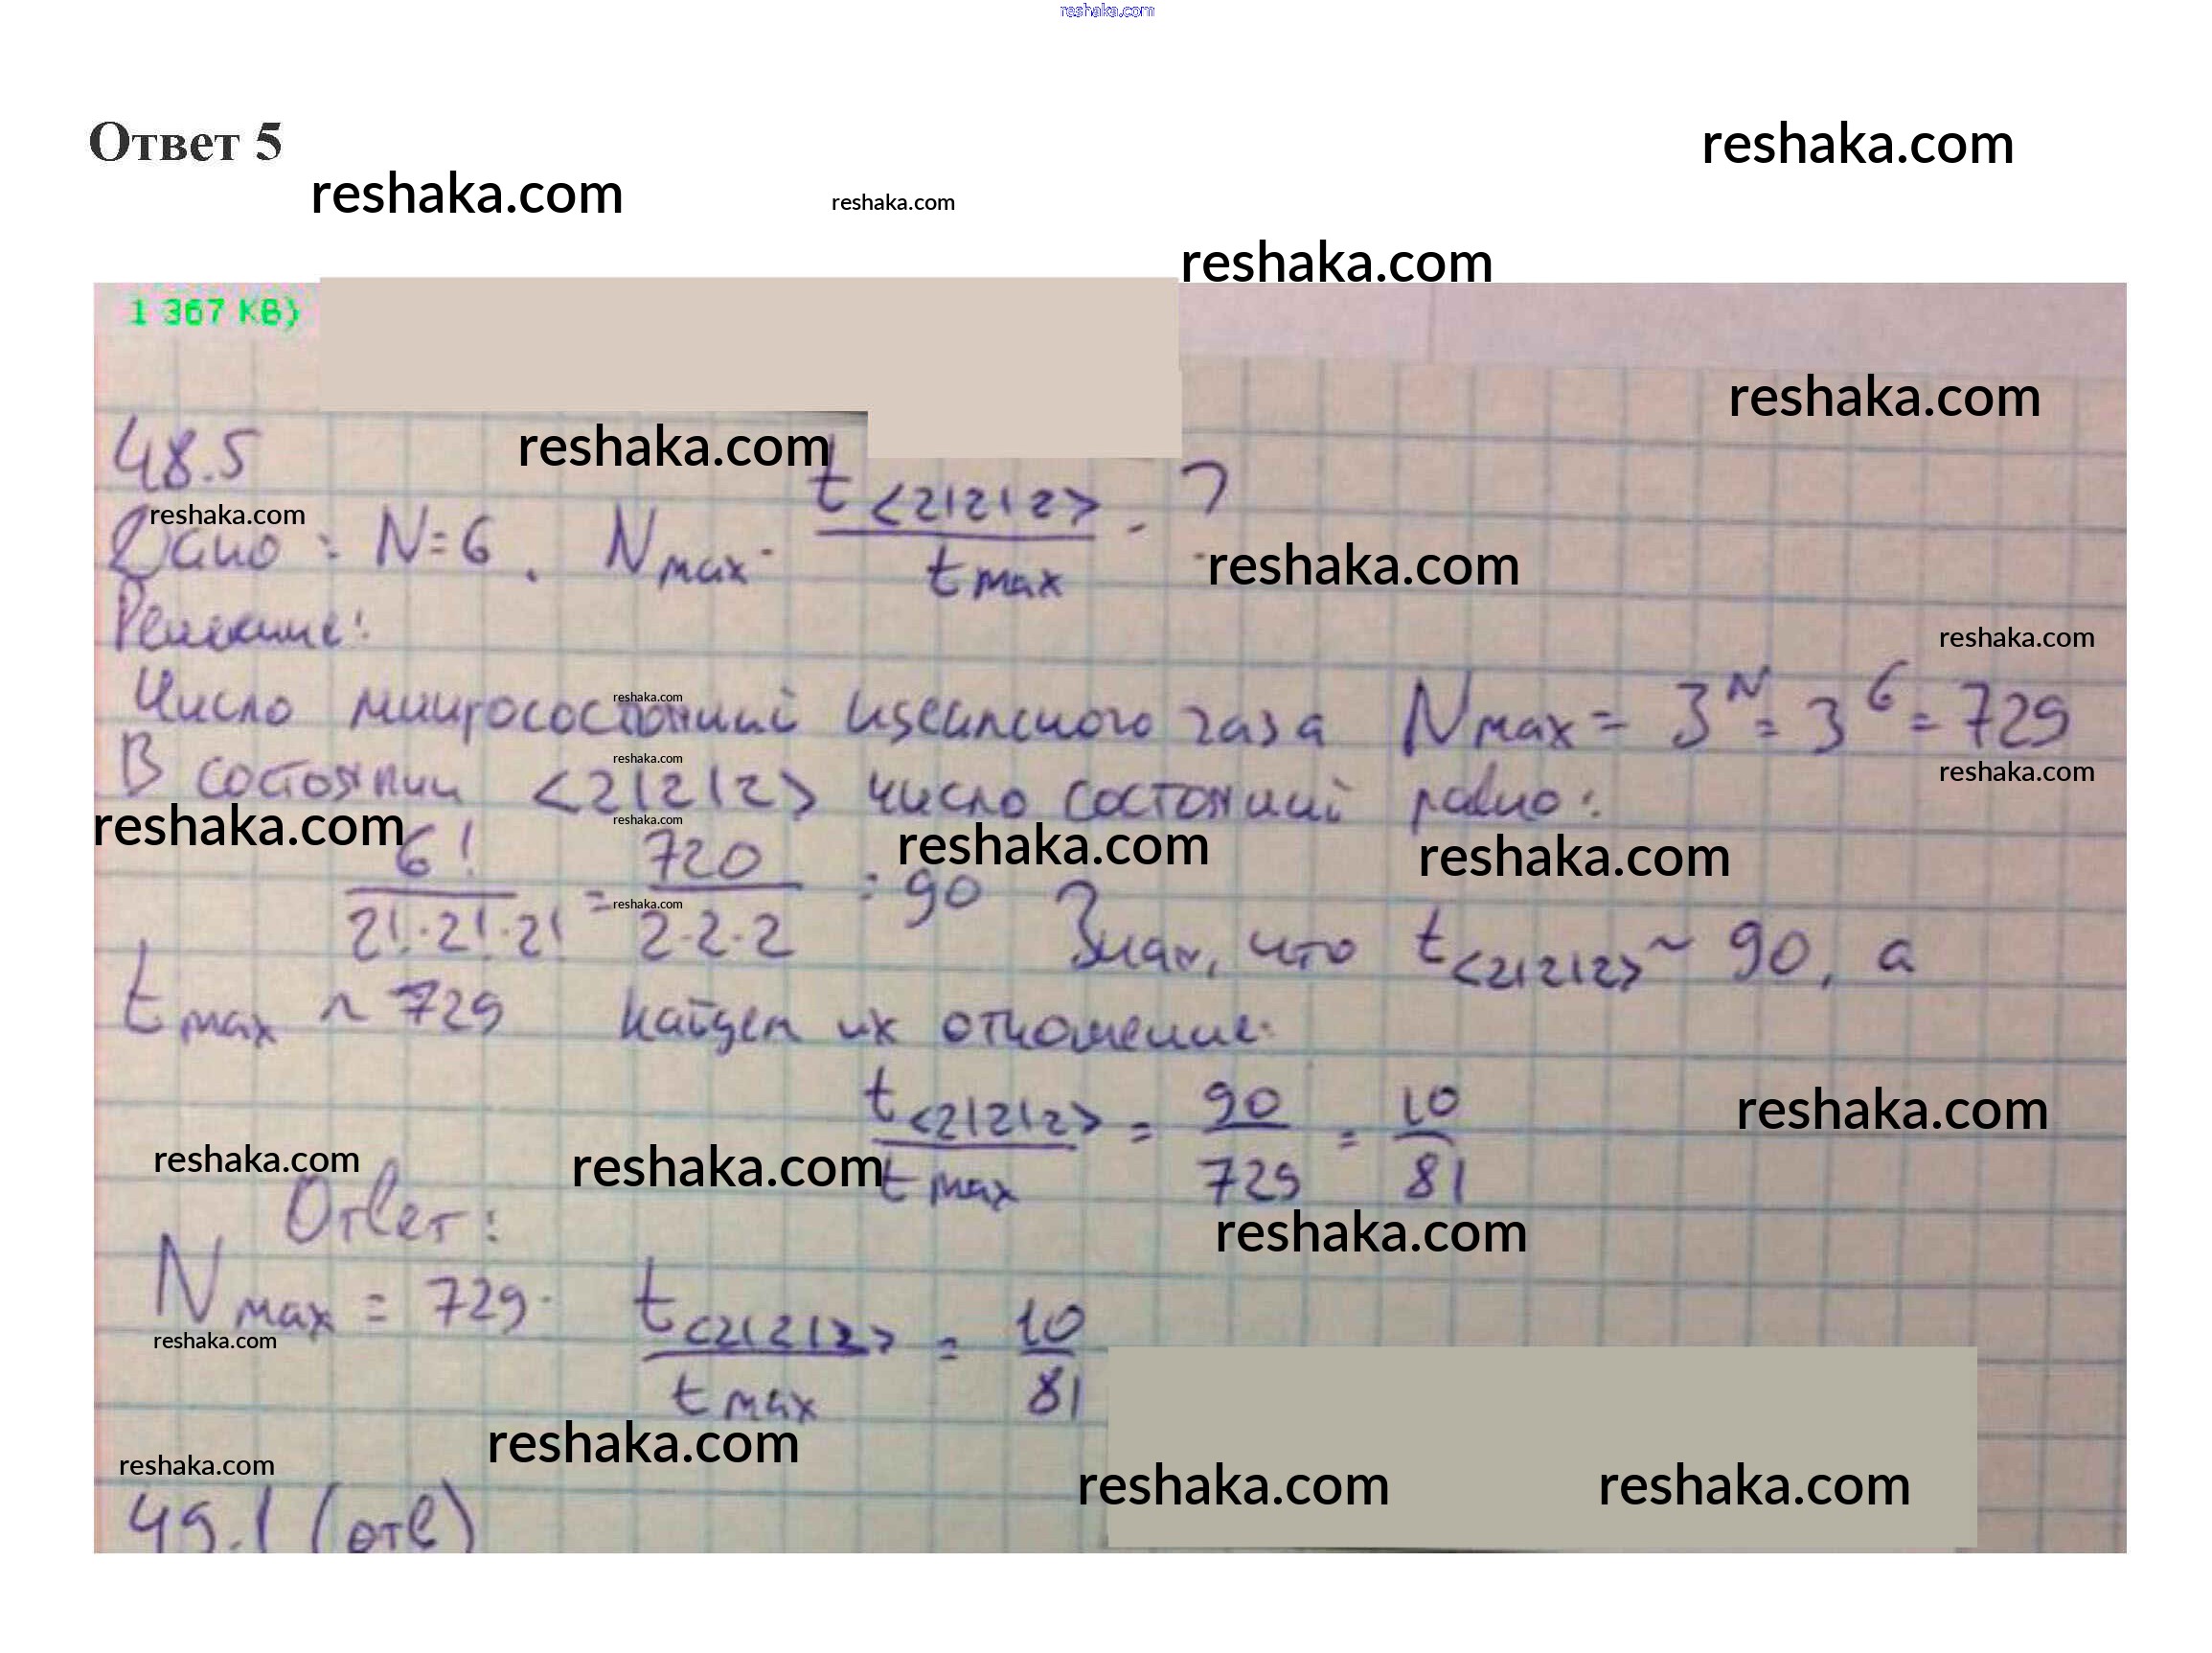 reshaka.com
Ответ 5
reshaka.com
reshaka.com
reshaka.com
reshaka.com
1 367 KB)
reshaka.com
48.5
reshaka.com
reshaka.com
Дано: N=6. N max. t <2|2|2> / t max - ?
reshaka.com
Решение:
reshaka.com
Число микросостояний идеального газа N max = 3^N = 3^6 = 729
reshaka.com
В состоянии <2|2|2> число состояний равно:
reshaka.com
reshaka.com
reshaka.com
reshaka.com
reshaka.com
reshaka.com
6! / 2!·2!·2! = 720 / 2·2·2 = 90 Зная, что t <2|2|2> ~ 90, а
reshaka.com
t max ~ 729 найдем их отношение:
t <2|2|2> / t max = 90 / 729 = 10 / 81
reshaka.com
reshaka.com
reshaka.com
Ответ:
reshaka.com
N max = 729. t <2|2|2> / t max = 10 / 81
reshaka.com
reshaka.com
reshaka.com
reshaka.com
reshaka.com
49.1 (отв)